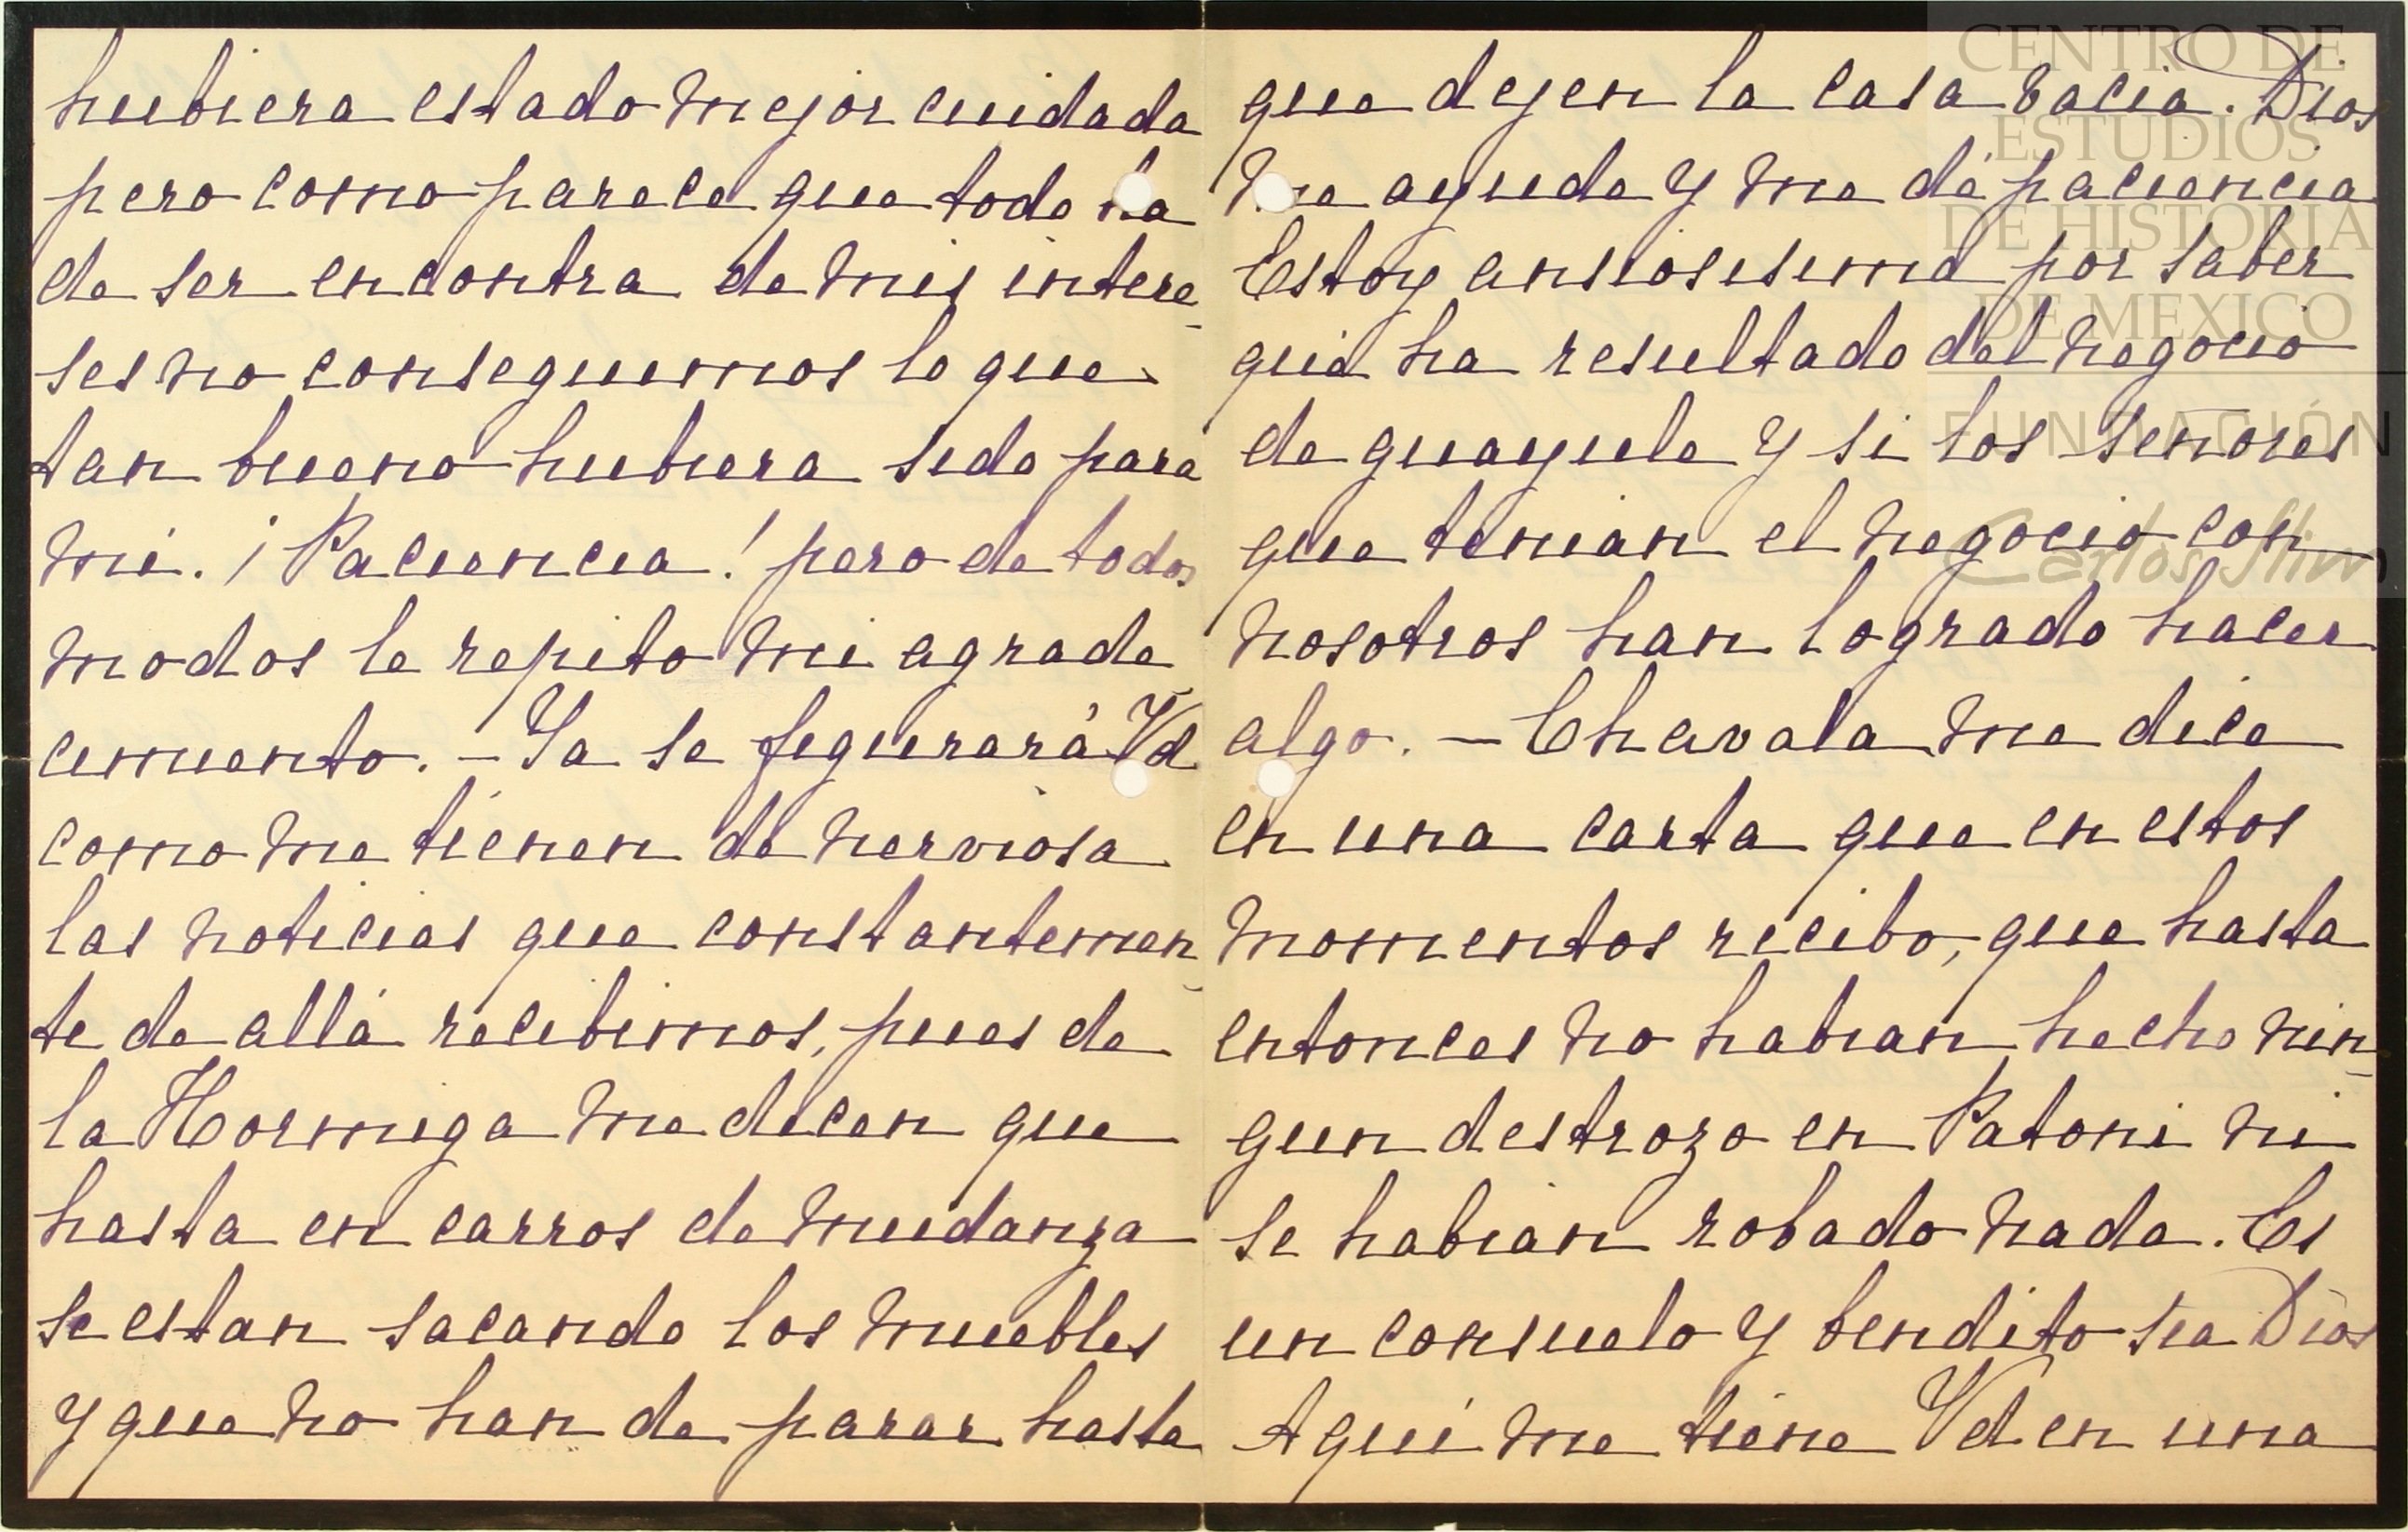 hubiera estado mejor cuidada
pero como parece que todo ha
de ser encontra de mis intere-
ses no conseguimos lo que
tan bueno hubiera sido para
mi. ¡Paciencia! pero de todos
modos le repito mi agrade
cimiento. - Ya se figurará Vd
como me tienen de nerviosa
las noticias que constantemen-
te de allá recibimos, pues de
la Hormiga me dicen que
hasta en carros de mudanza
se estan sacando los muebles
y que no han de parar hasta
que dejen la casa bacia. Dios
me ayude y me dé paciencia
Estoy ansiosisima por saber
qué ha resultado del negocio
de guayule y si los señores
que tenian el negocio con
nosotros han logrado hacer
algo. - Chavala me dice
en una carta que en estos
momentos recibo, que hasta
entonces no habian hecho nin-
gun destrozo en Patoni ni
se habian robado nada. Es
un consuelo y bendito sea Dios
Aquí me tiene Vd en una
CENTRO DE
ESTUDIOS
DE HISTORIA
DE MEXICO
FUNDACIÓN
Carlos Slim